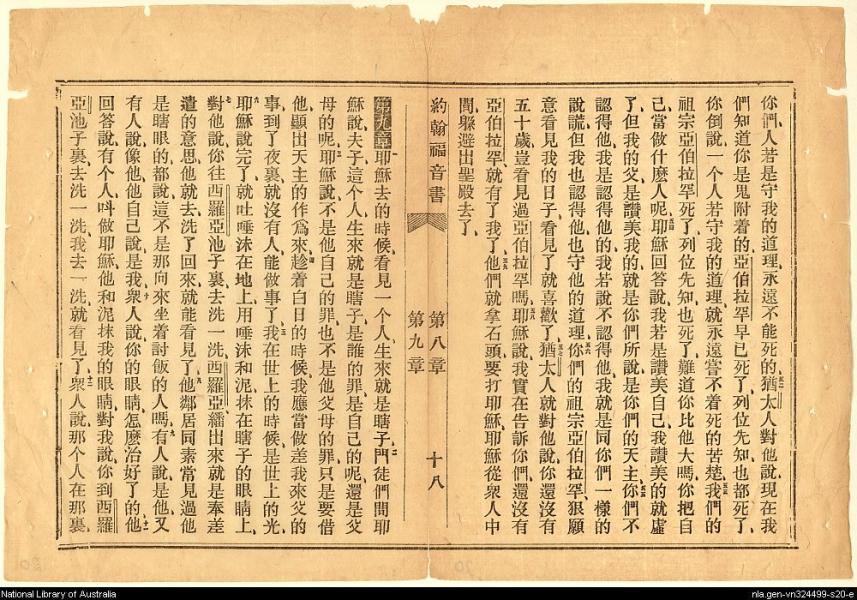 你們人若是守我的道理、永遠不能死的、猶太人對他說、現在我
們知道你是鬼附着的、亞伯拉罕早已死了、列位先知也都死了、
你倒說、一个人若守我的道理、就永遠嘗不着死的苦楚、我們的
祖宗亞伯拉罕死了、列位先知也死了、難道你比他大嗎、你把自
己當做什麽人呢、耶穌回答說、我若是讚美自己、我讚美的就虛
了、但我的父是讚美我的、就是你們所說是你們的天主、你們不
認得他、我是認得他的、我若說不認得他、我就是同你們一樣的
說謊、但我也認得他、也守他的道理、你們的祖宗亞伯拉罕、狠願
意看見我的日子、看見了就喜歡了、猶太人就對他說、你還沒有
五十歲、豈看見過亞伯拉罕嗎、耶穌說、我實在告訴你們、還沒有
亞伯拉罕就有了我了、他們就拿石頭要打耶穌、耶穌從衆人中
間、躲避出聖殿去了、
約翰福音書 第八章 第九章 十八
第九章 耶穌去的時候、看見一个人、生來就是瞎子、門徒們問耶
穌說、夫子、這个人生來就是瞎子、是誰的罪、是自己的呢、還是父
母的呢、耶穌說、不是他自己的罪、也不是他父母的罪、只是要借
他顯出天主的作爲來、趁着白日的時候、我應當做差我來父的
事、到了夜裏、就沒有人能做事了、我在世上的時候、是世上的光、
耶穌說完了、就吐唾沫在地上、用唾沫和泥、抹在瞎子的眼睛上、
對他說、你往西羅亞池子裏去洗一洗、西羅亞繙出來就是奉差
遣的意思、他就去洗了、回來就能看見了、他鄰居同素常見過他
是瞎眼的都說、這不是那向來坐着討飯的人嗎、有人說是他、又
有人說像他、他自己說是我、衆人說你的眼睛怎麽治好了的、他
回答說、有个人呌做耶穌、他和泥抹我的眼睛、對我說、你到西羅
亞池子裏去洗一洗、我去一洗就看見了、衆人說、那个人在那裏、
National Library of Australia
nla.gen-vn324499-s20-e